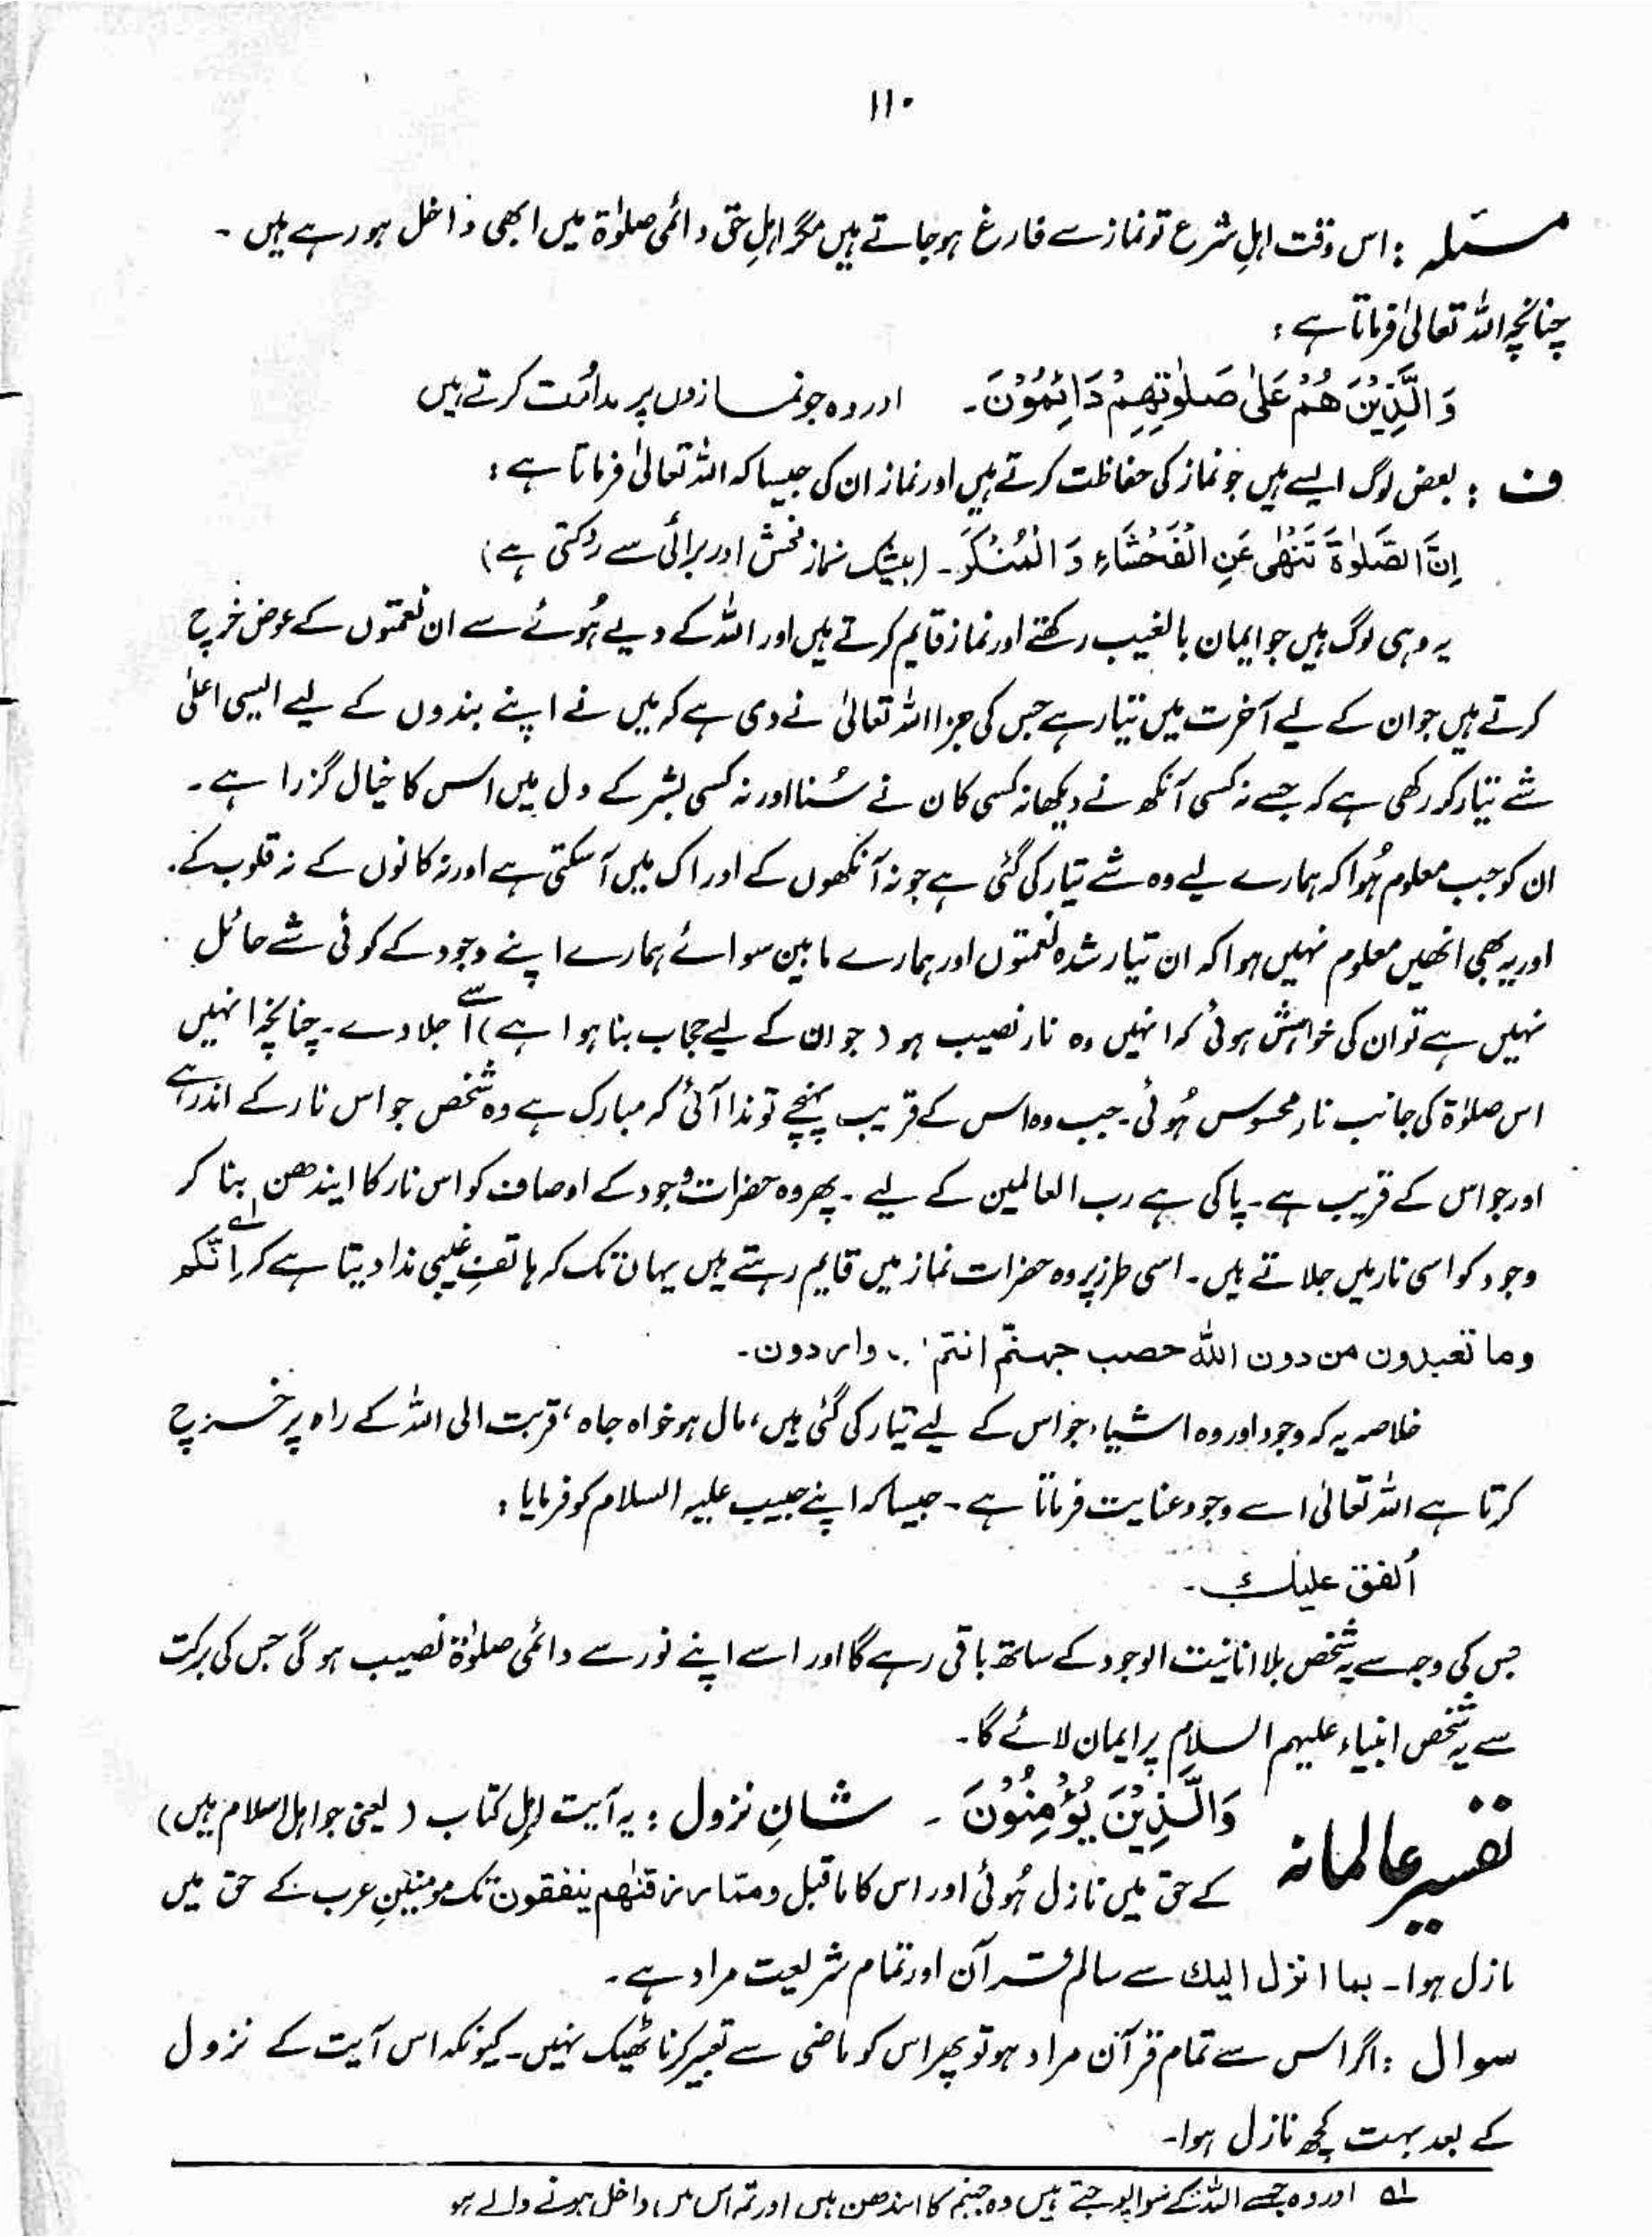 ۱۱۰
مسئلہ : اس وقت اہلِ شرع تو نماز سے فارغ ہو جاتے ہیں مگر اہلِ حق دائمی صلوٰۃ میں ابھی داخل ہو رہے ہیں ۔
چنانچہ اللہ تعالیٰ فرماتا ہے :
وَالَّذِیْنَ هُمْ عَلٰی صَلٰوتِهِمْ دَائِمُوْنَ۔ اور وہ جو نمازوں پر مدائمت کرتے ہیں
ف : بعض لوگ ایسے ہیں جو نماز کی حفاظت کرتے ہیں اور نماز ان کی جیسا کہ اللہ تعالیٰ فرماتا ہے :
اِنَّ الصَّلٰوةَ تَنْهٰی عَنِ الْفَحْشَاءِ وَ الْمُنْكَرِ۔ (بیشک نماز فحش اور برائی سے روکتی ہے)
یہ وہی لوگ ہیں جو ایمان بالغیب رکھتے اور نماز قایم کرتے ہیں اور اللہ کے دیے ہُوئے سے ان نعمتوں کے عوض خرچ
کرتے ہیں جو ان کے لیے آخرت میں تیار ہے جس کی جزا اللہ تعالیٰ نے دی ہے کہ میں نے اپنے بندوں کے لیے ایسی اعلیٰ
شے تیار کر رکھی ہے کہ جسے نہ کسی آنکھ نے دیکھا نہ کسی کان نے سُنا اور نہ کسی بشر کے دل میں اس کا خیال گزرا ہے ۔
ان کو جب معلوم ہُوا کہ ہمارے لیے وہ شے تیار کی گئی ہے جو نہ آنکھوں کے ادراک میں آسکتی ہے اور نہ کانوں کے نہ قلوب کے.
اور یہ بھی انھیں معلوم نہیں ہوا کہ ان تیار شدہ نعمتوں اور ہمارے مابین سوائے ہمارے اپنے وجود کے کوئی شے حائل
نہیں ہے تو ان کی خواہش ہوئی کہ انہیں وہ نار نصیب ہو ( جو ان کے لیے حجاب بنا ہوا ہے) اسے جلا دے۔ چنانچہ انہیں
اس صلوٰۃ کی جانب نار محسوس ہُوئی۔ جب وہ اس کے قریب پہنچے تو ندا آئی کہ مبارک ہے وہ شخص جو اس نار کے اندر ہے
اور جو اس کے قریب ہے۔ پاکی ہے رب العالمین کے لیے ۔ پھر وہ حضرات وجود کے اوصاف کو اس نار کا ایندھن بنا کر
وجود کو اسی نار میں جلاتے ہیں۔ اسی طرز پر وہ حضرات نماز میں قایم رہتے ہیں یہاں تک کہ ہاتفِ غیبی ندا دیتا ہے کہ اِنّکم لے
وما تعبدون من دون اللہ حصب جہنّم انتم لہا واردون۔
خلاصہ یہ کہ وجود اور وہ اشیاء جو اس کے لیے تیار کی گئی ہیں، مال ہو خواہ جاہ، قربت الی اللہ کے راہ پر خرچ
کرتا ہے اللہ تعالیٰ اسے وجود عنایت فرماتا ہے ۔ جیسا کہ اپنے حبیب علیہ السلام کو فرمایا :
اُنفق علیك ۔
جس کی وجہ سے یہ شخص بلا انانیت الوجود کے ساتھ باقی رہے گا اور اسے اپنے نور سے دائمی صلوٰۃ نصیب ہو گی جس کی برکت
سے یہ شخص انبیاء علیہم السلام پر ایمان لائے گا۔
تفسیر عالمانہ وَالَّذِیْنَ یُؤْمِنُوْنَ ۔ شانِ نزول : یہ آیت اہلِ کتاب ( یعنی جو اہلِ اسلام ہیں)
کے حق میں نازل ہُوئی اور اس کا ماقبل ومما رزقنٰهم ینفقون تک مومنینِ عرب کے حق میں
نازل ہوا۔ بما انزل الیك سے سالم قرآن اور تمام شریعت مراد ہے ۔
سوال : اگر اس سے تمام قرآن مراد ہو تو پھر اس کو ماضی سے تعبیر کرنا ٹھیک نہیں۔ کیونکہ اس آیت کے نزول
کے بعد بہت کچھ نازل ہوا۔
لے اور وہ جسے اللہ کے سوا پوجتے ہیں وہ جہنم کا ایندھن ہیں اور تم اس میں داخل ہونے والے ہو